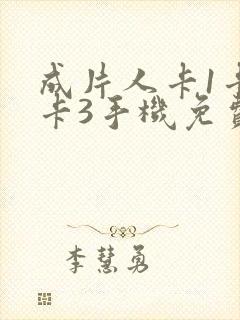 成片人卡1卡
卡3手機免費
李慧勇